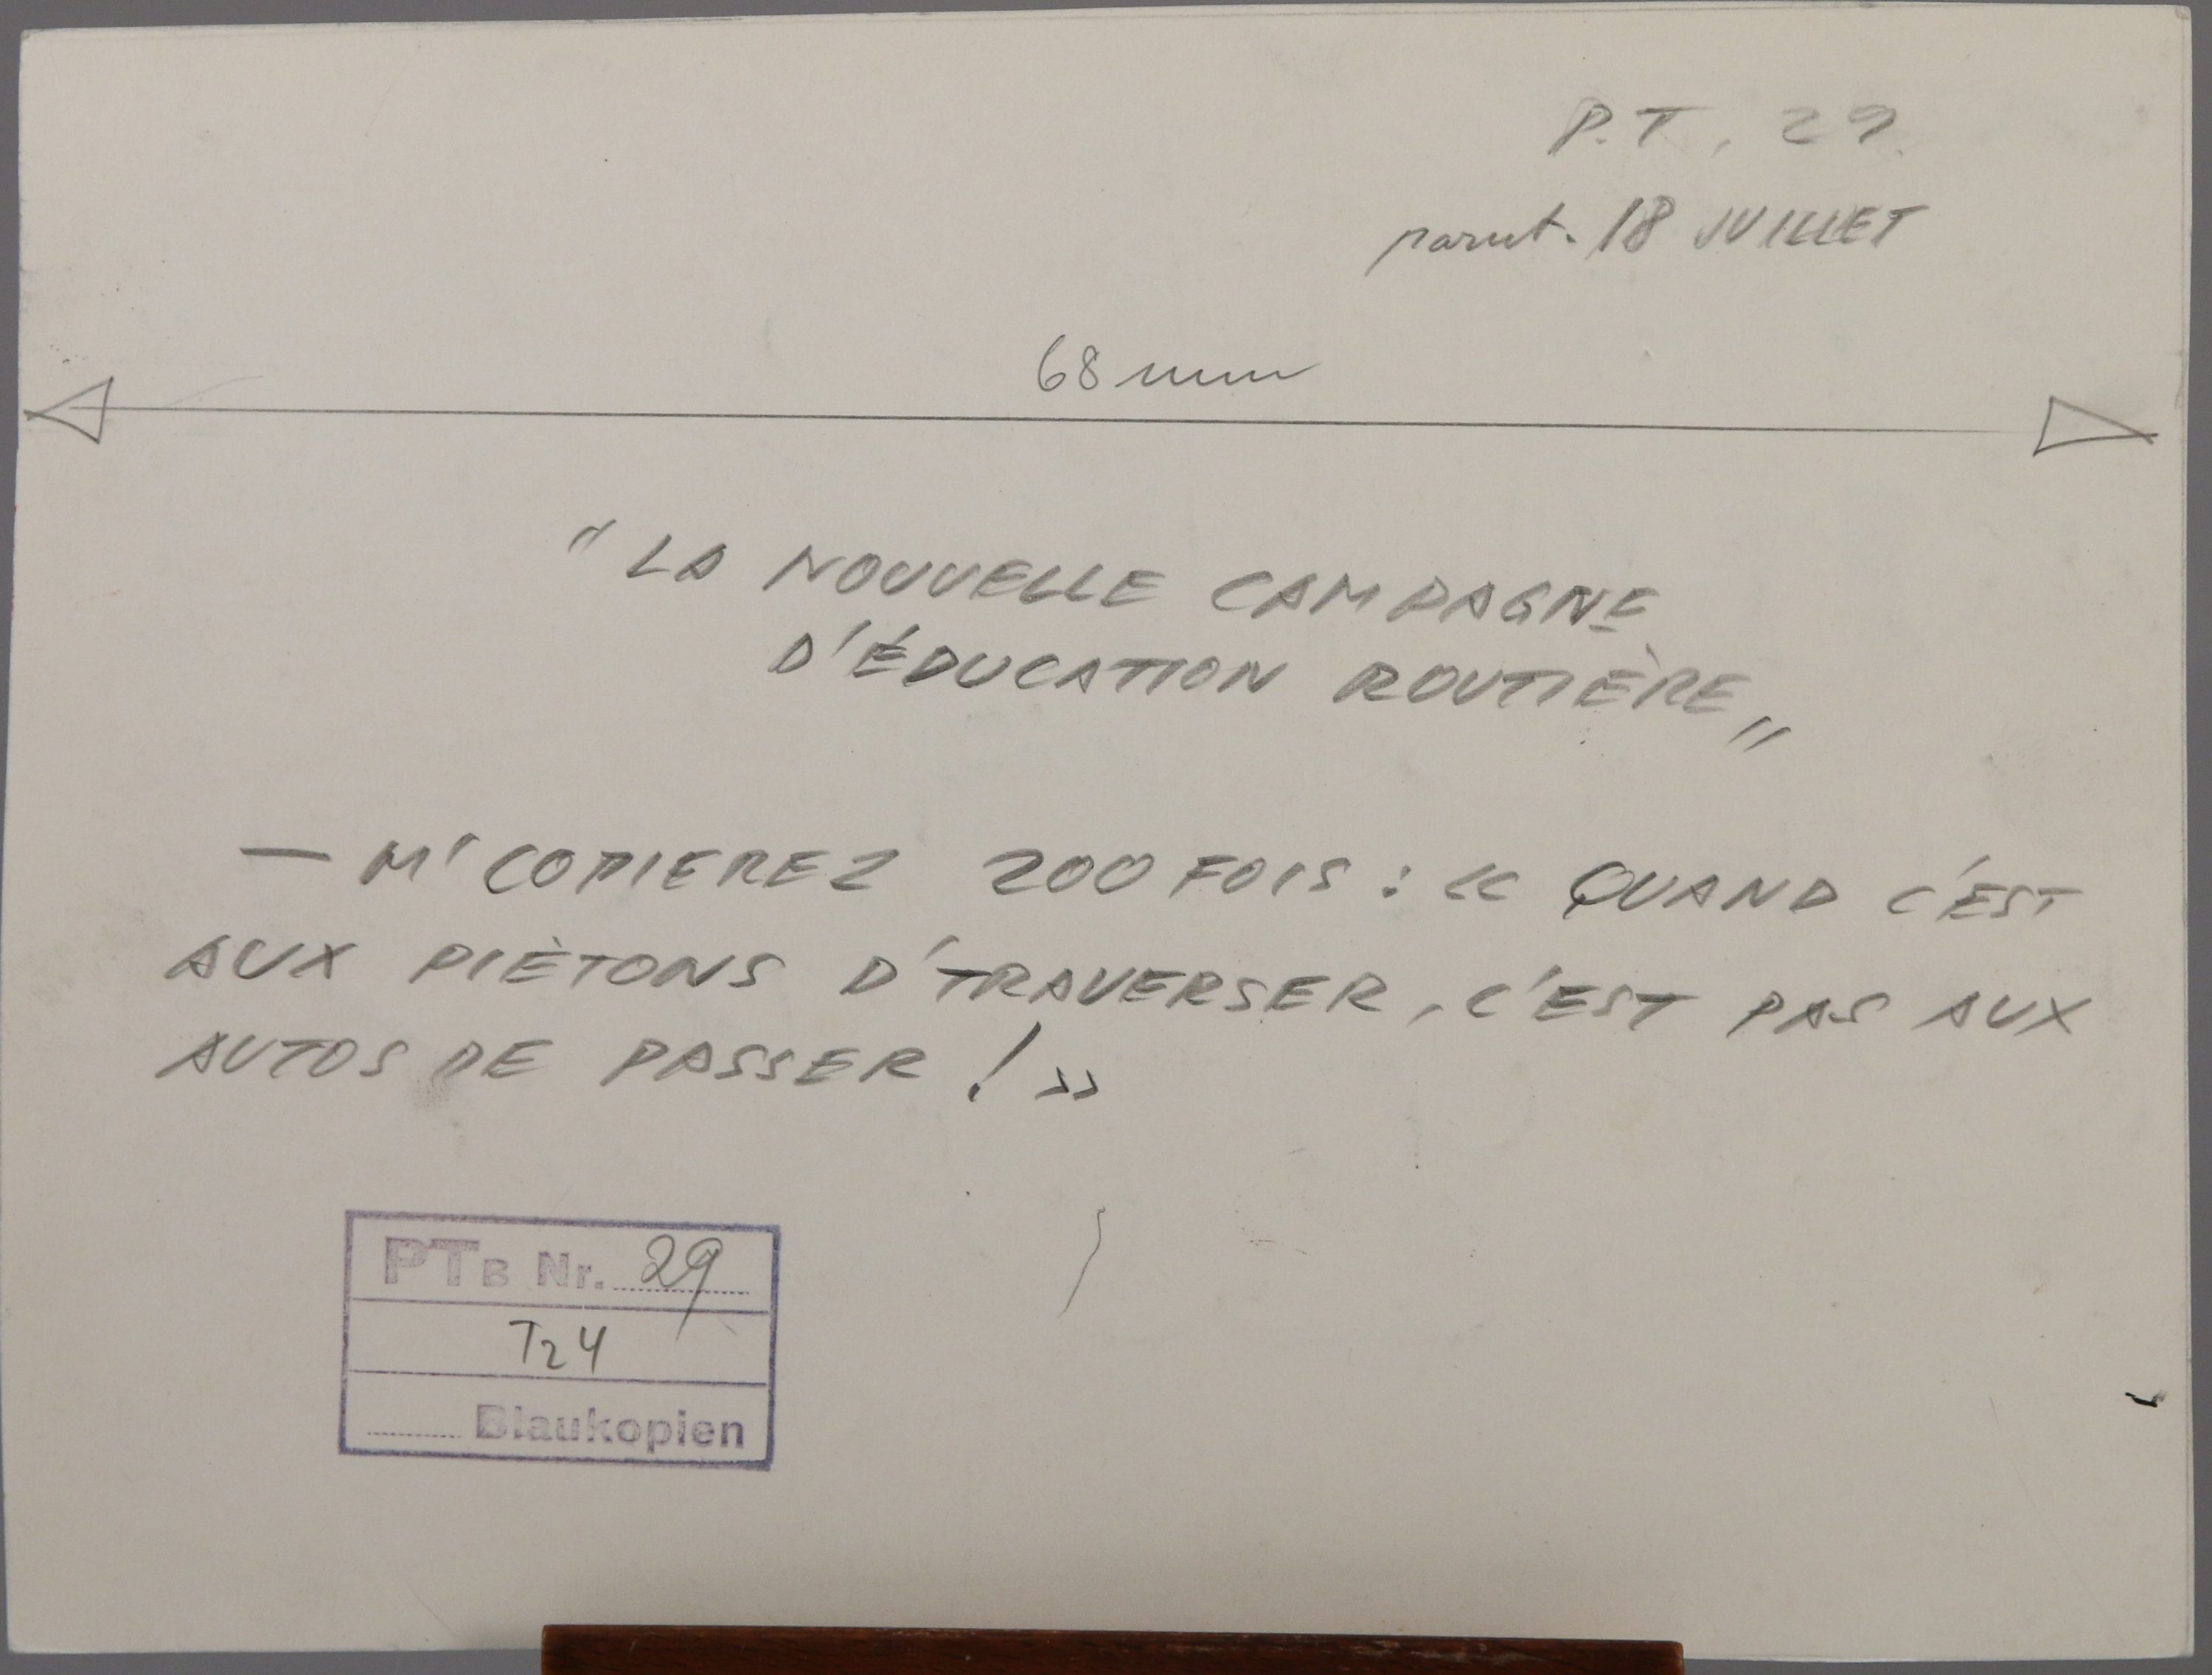 P.T. 29
parut. 18 JUILLET
68 mm
" LA NOUVELLE CAMPAGNE
D'ÉDUCATION ROUTIÈRE „
— M'COPIEREZ 200 FOIS : « QUAND C'EST
AUX PIÈTONS D'TRAVERSER, C'EST PAS AUX
AUTOS DE PASSER ! »
PTB Nr. 29
T24
Blaukopien